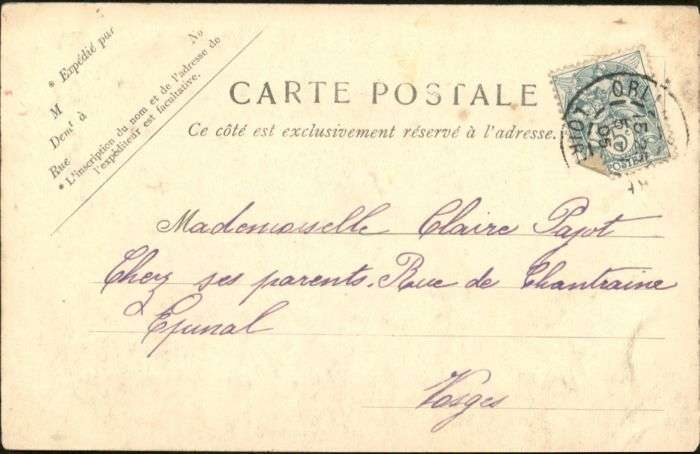 * Expédié par
M
No
Demt à
Rue
* L'inscription du nom et de l'adresse de
l'expéditeur est facultative.
CARTE POSTALE
Ce côté est exclusivement réservé à l'adresse.
Mademoiselle Claire Pajot
Chez ses parents. Rue de Chantraine
à Epinal
Vosges
POSTES